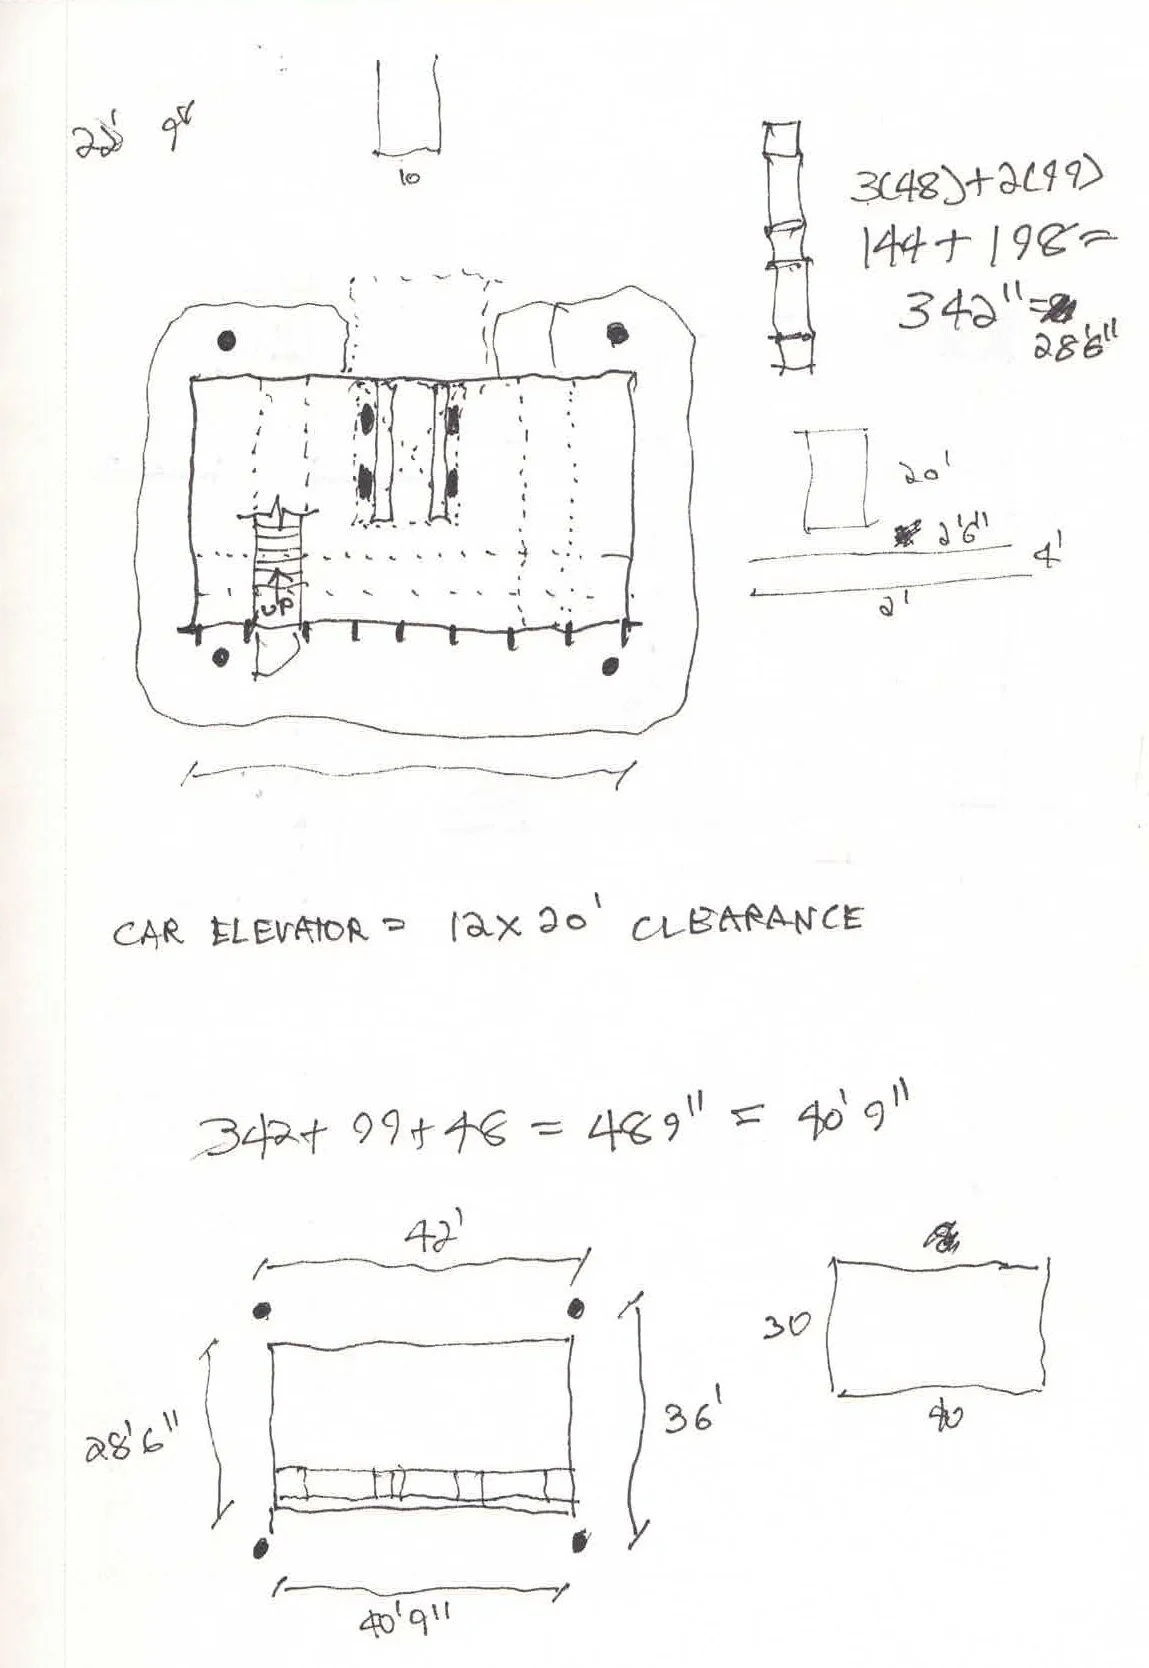 22' 9"
10
3(48)+2(99)
144+198=
342"=
28'6"
20'
2'6"
4'
2'
UP
CAR ELEVATOR = 12x20' CLEARANCE
342+ 99+48 = 489" = 40'9"
42'
28'6"
36'
40'9"
30
40